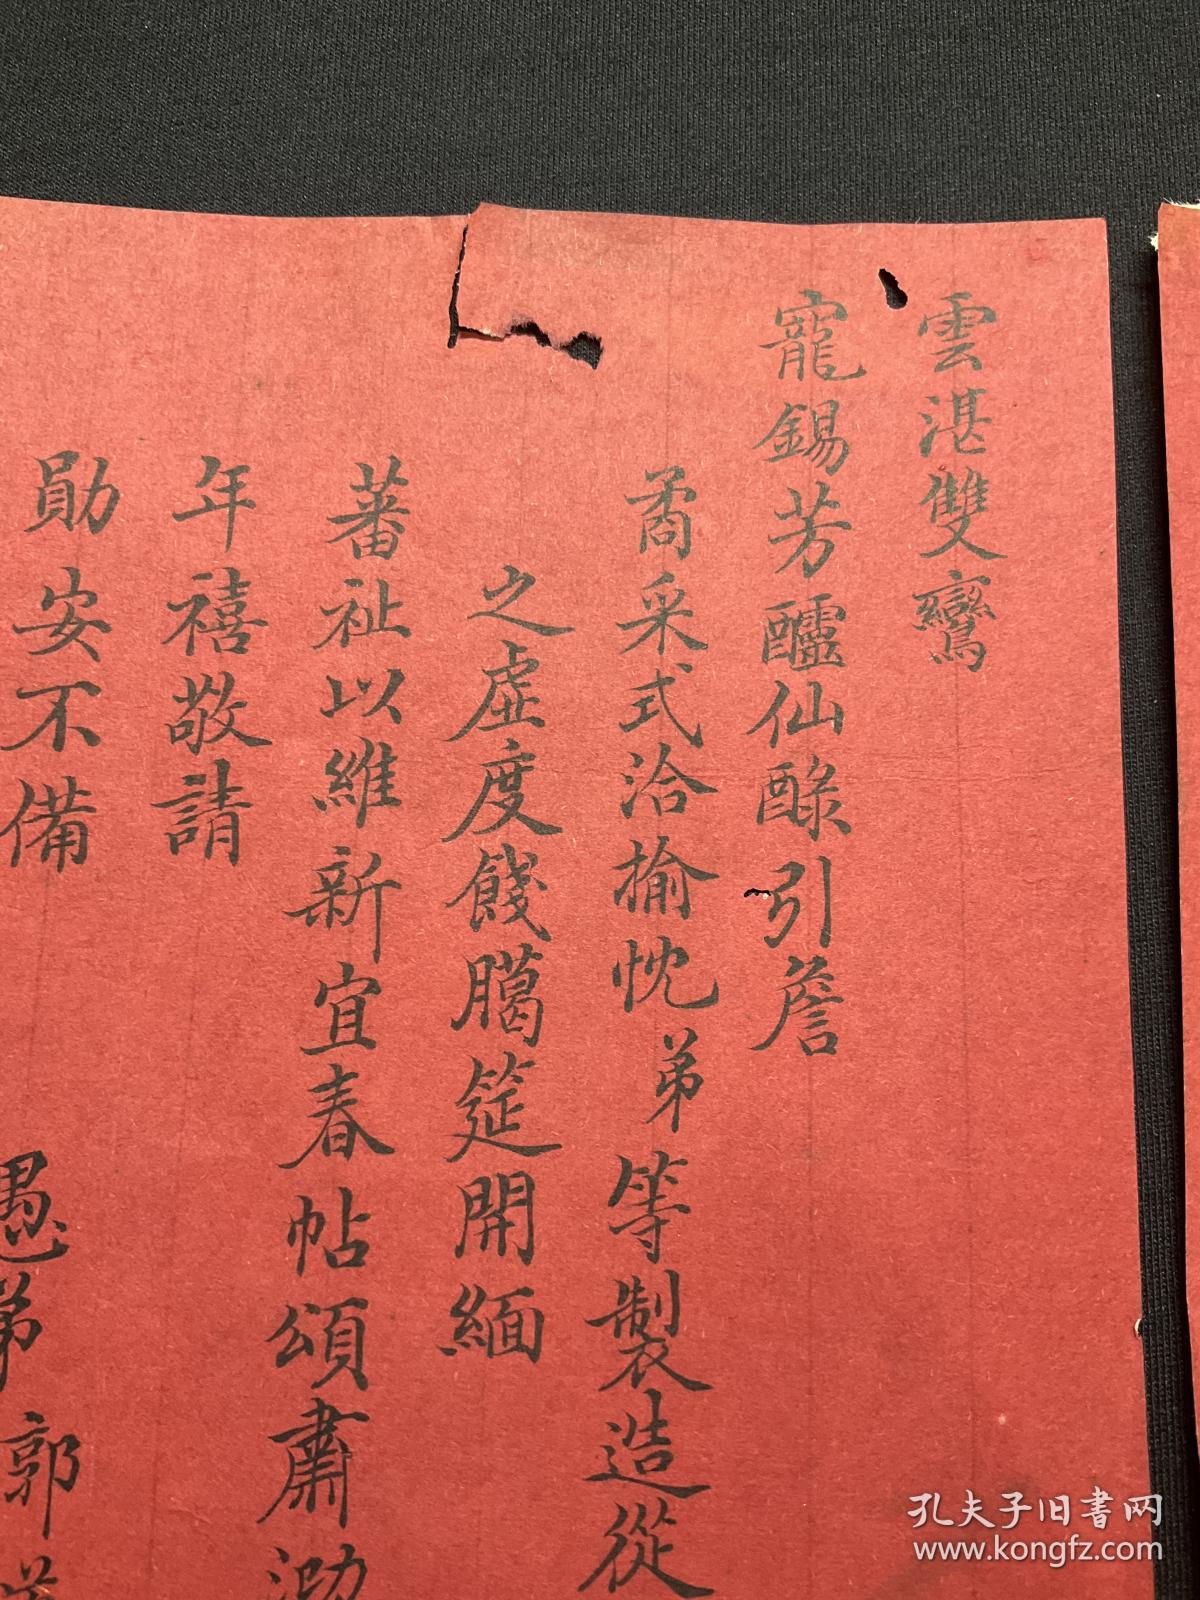 雲湛雙鸞
寵錫芳醽仙醁引詹
矞采式洽揄忱弟等製造從
之虛度餞臈筵開緬
蕃祉以維新宜春帖頌肅泐
年禧敬請
勛安不備
愚弟郭
孔夫子旧书网
www.kongfz.com